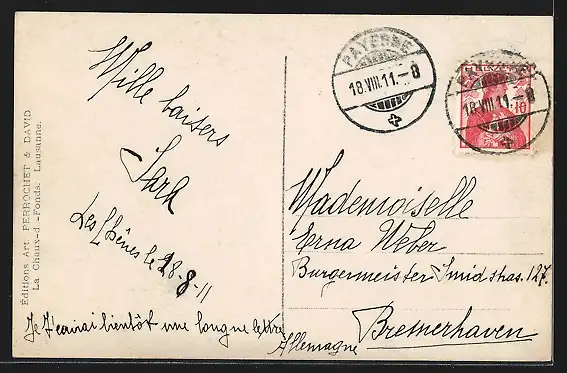 Editions Art. PERROCHET & DAVID
La Chaux-d.-Fonds. Lausanne.
Mille baisers
Les Chênes le 18.8-11
Je t'écrirai bientôt une longue lettre
PAYERNE
18.VIII.11.-8
18.VIII.11.-8
10
Mademoiselle
Erna Weber
Burgermeister Smidstras. 127.
Bremerhaven
Allemagne